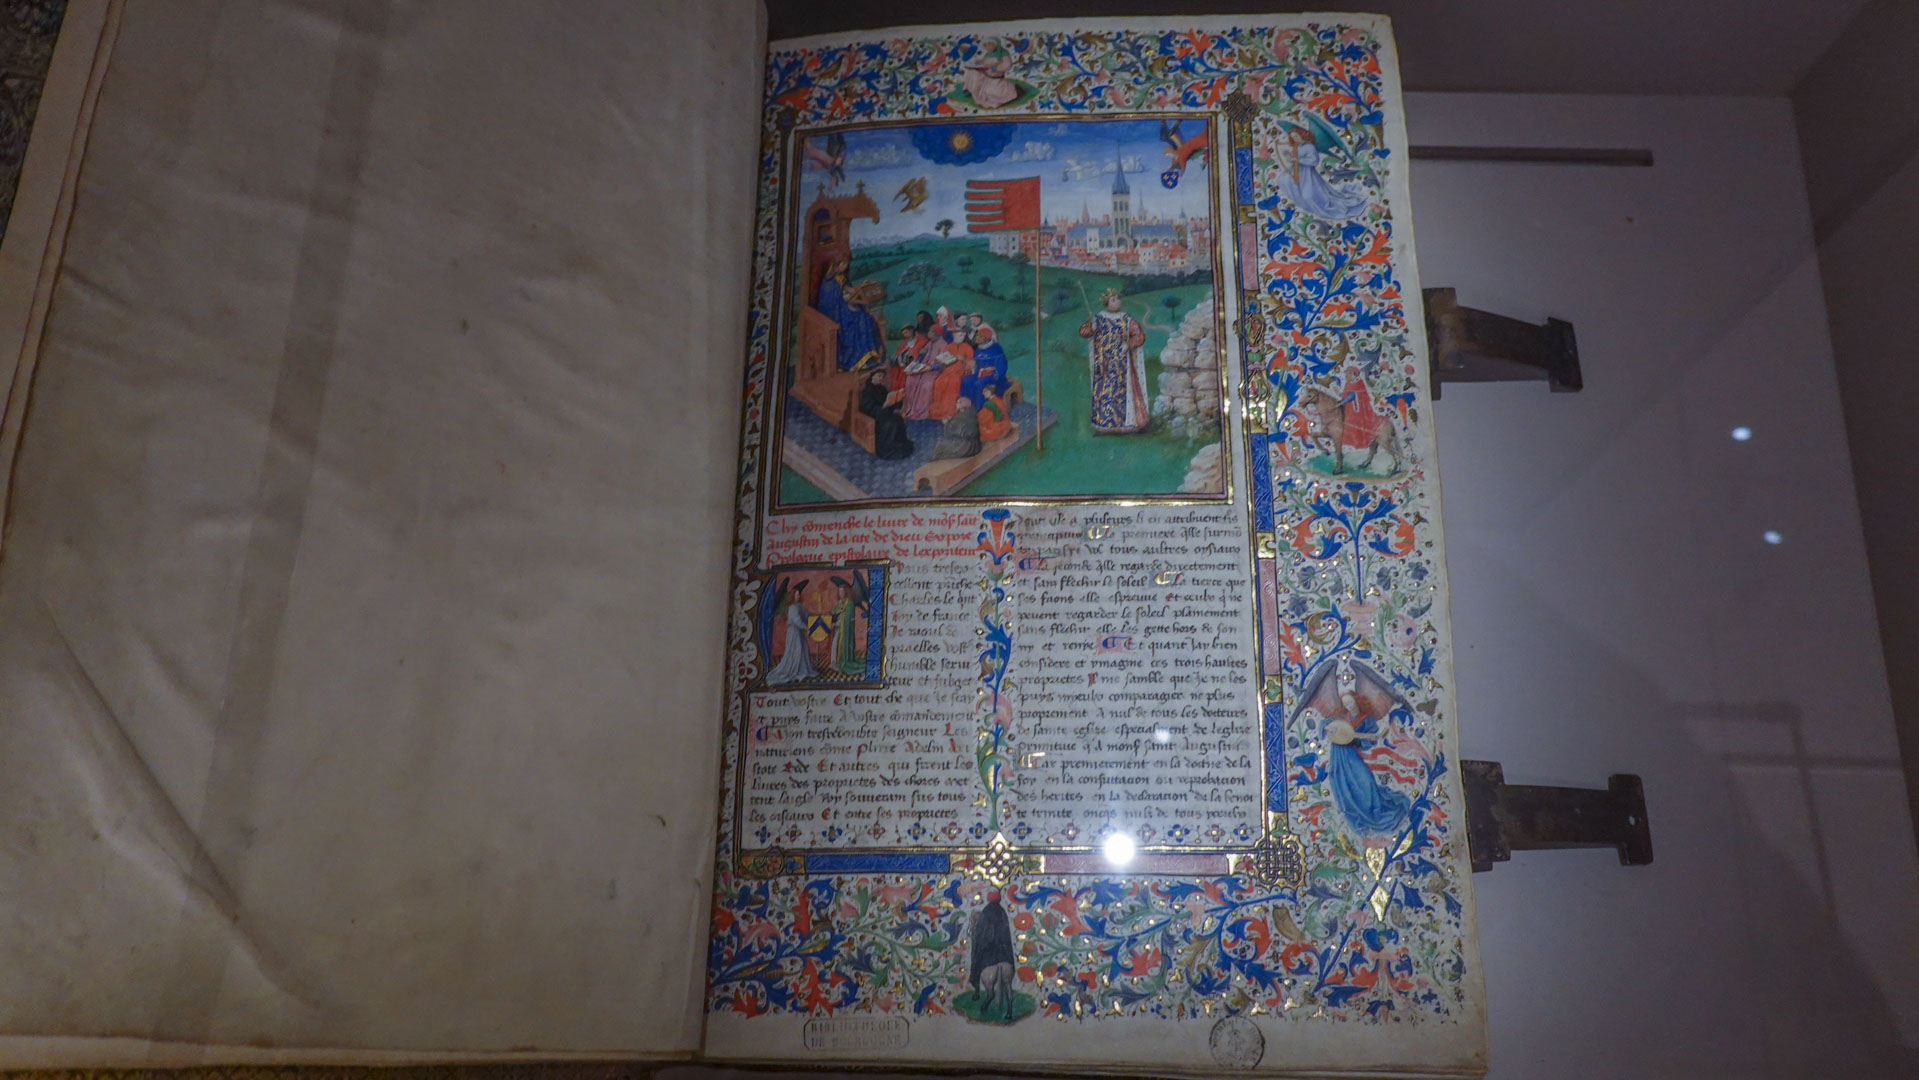 Chy comenche le livre de mons saīt
Augustin de la cite de dieu Et pre
Prologue epistolaire de lexpositeur
tresex
cellent prīche
Charles le qnt
Roy de france
Je raoul de
praelles vostre
humble servi
teur et subget
Tout vostre Et tout che que Je scay
et puys faire A vostre comandement
Mon tresredoubte seigneur Les
naturiens cōme Pline Adelin Ari
stote Bede Et autres qui firent les
livres des proprietes des choses met
tent laigle Roy souverain sus tous
les oiseaux Et entre ses proprietes
dont elle a plusieurs Ilz en attribuent
La premiere qlle
tous aultres oyseaux
La seconde qlle regarde directement
et sans flechir le soleil La tierce que
ses faons elle espreuve Et ceulx q ne
pevent regarder le soleil plainement
sans flechir elle les gette hors de son
ny et renye Et quant Jay bien
considere et ymagine ces trois haultes
proprietes Il me samble que Je ne les
puys myeulx comparagier ne plus
proprement A nul de tous les docteurs
de sainte eglise especialment de leglise
primitive q a mons saint Augustin
Car premierement en la doctrine de la
foy en la confutation ou reprobacion
des herites en la declaracion de la benoi
te trinite oncqs nulz de tous ceulx
BIBLIOTHEQUE
DE BOURGOGNE